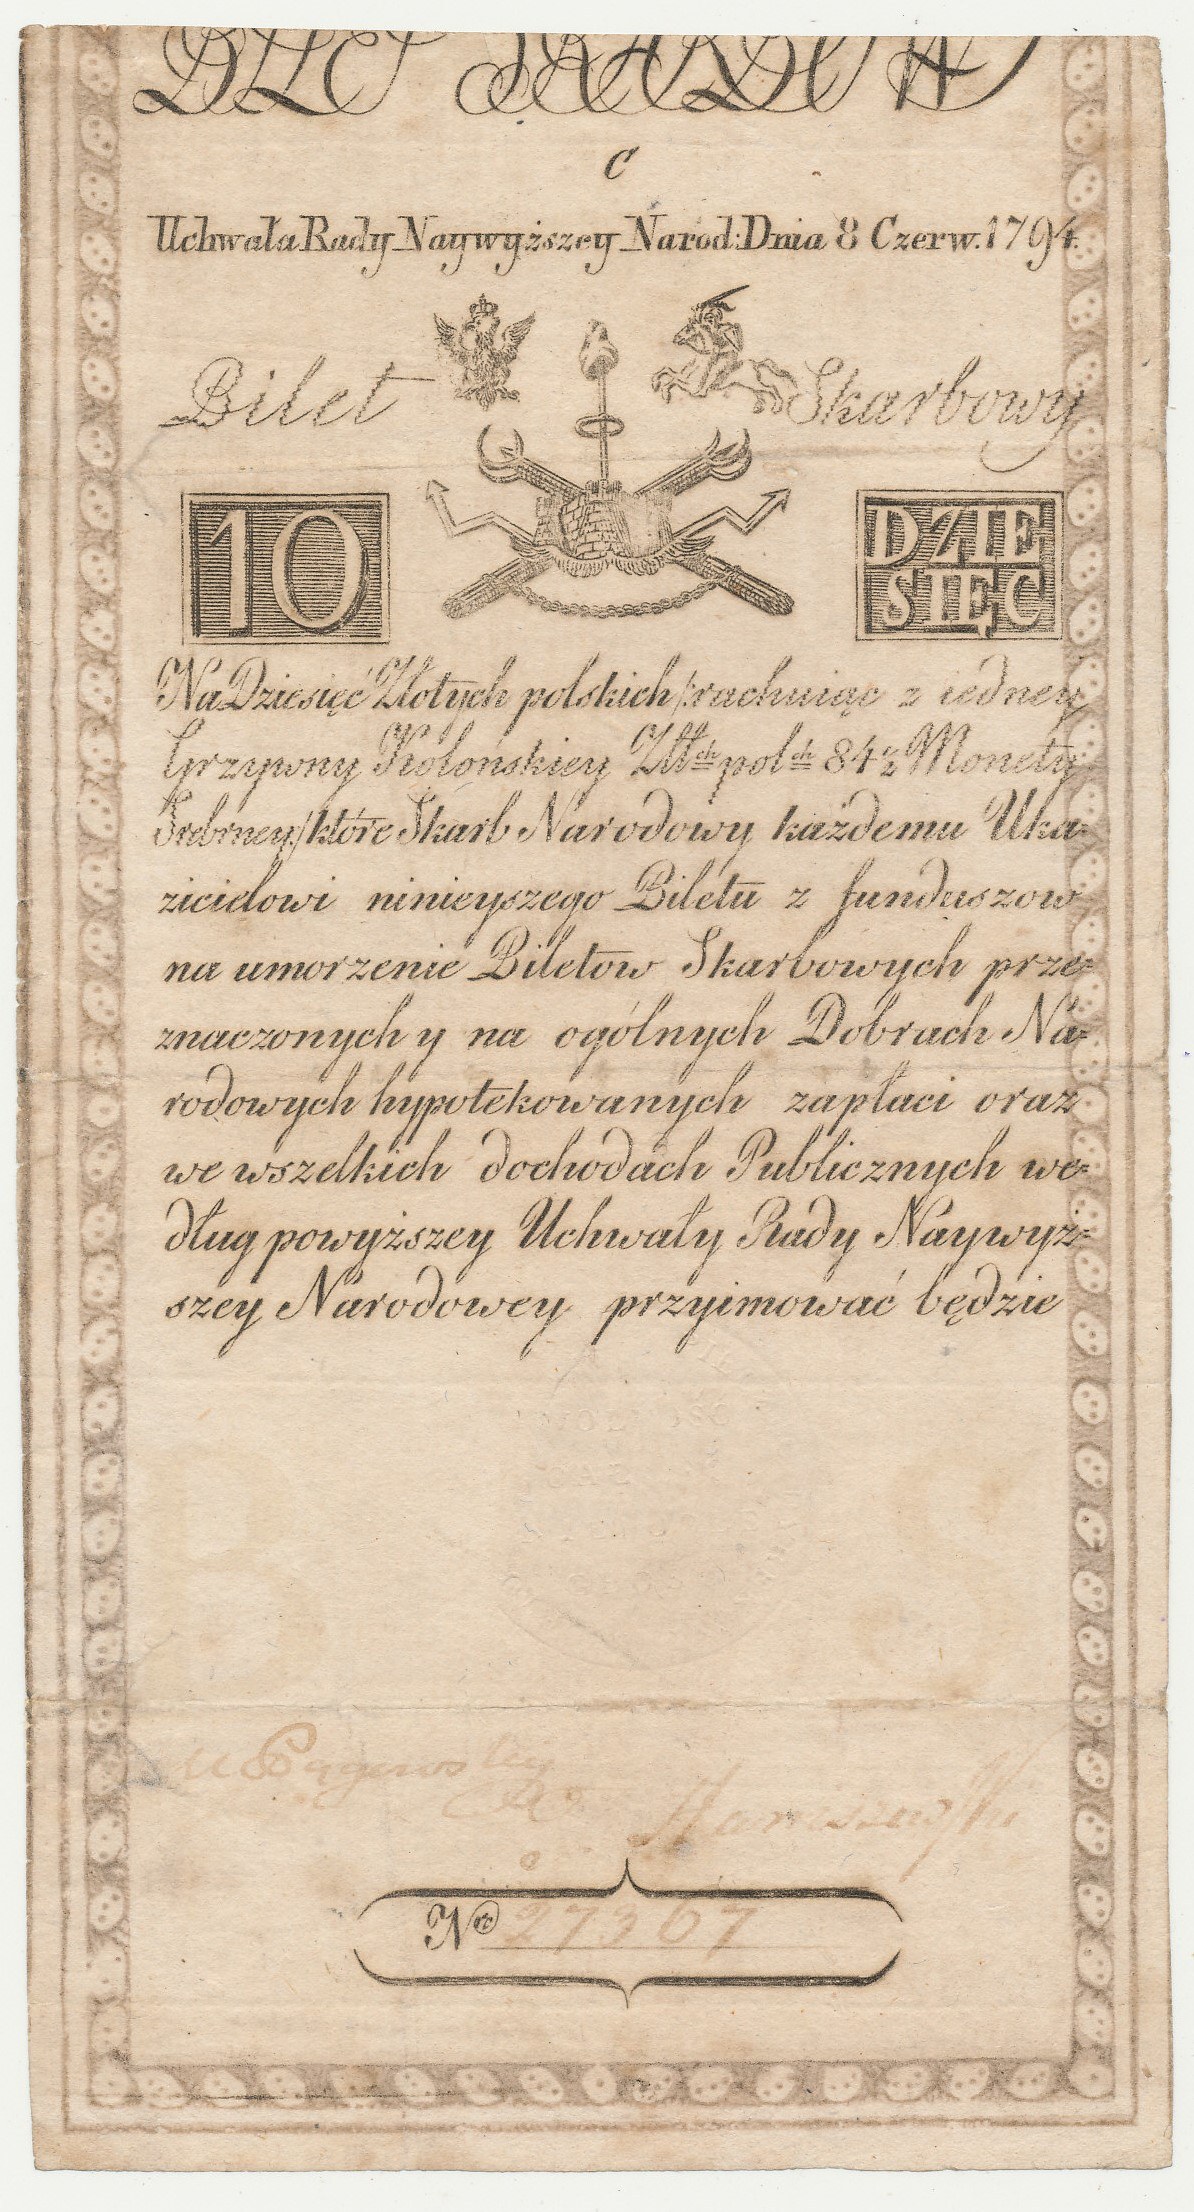 BILET SKARBOWY
C
Uchwała Rady Naywyższey Narod: Dnia 8 Czerw. 1794.
Bilet Skarbowy
10 DZIE
SIĘĆ
Na Dziesięć Złotych polskich /:rachuiąc z iedney
Grzywny Kolońskiey Złłch polch 84½ Monety
Srebrney:/ które Skarb Narodowy każdemu Uka=
zicielowi ninieyszego Biletu z funduszow
na umorzenie Biletow Skarbowych prze=
znaczonych y na ogólnych Dobrach Na=
rodowych hypotekowanych zapłaci oraz
we wszelkich dochodach Publicznych we=
dług powyższey Uchwały Rady Naywyż=
szey Narodowey przyimować będzie
Nro 27367